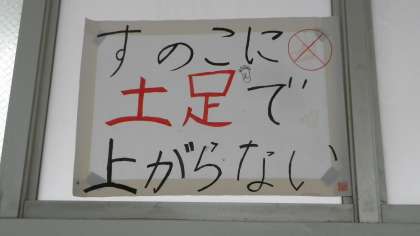 すのこに
土足で
上がらない